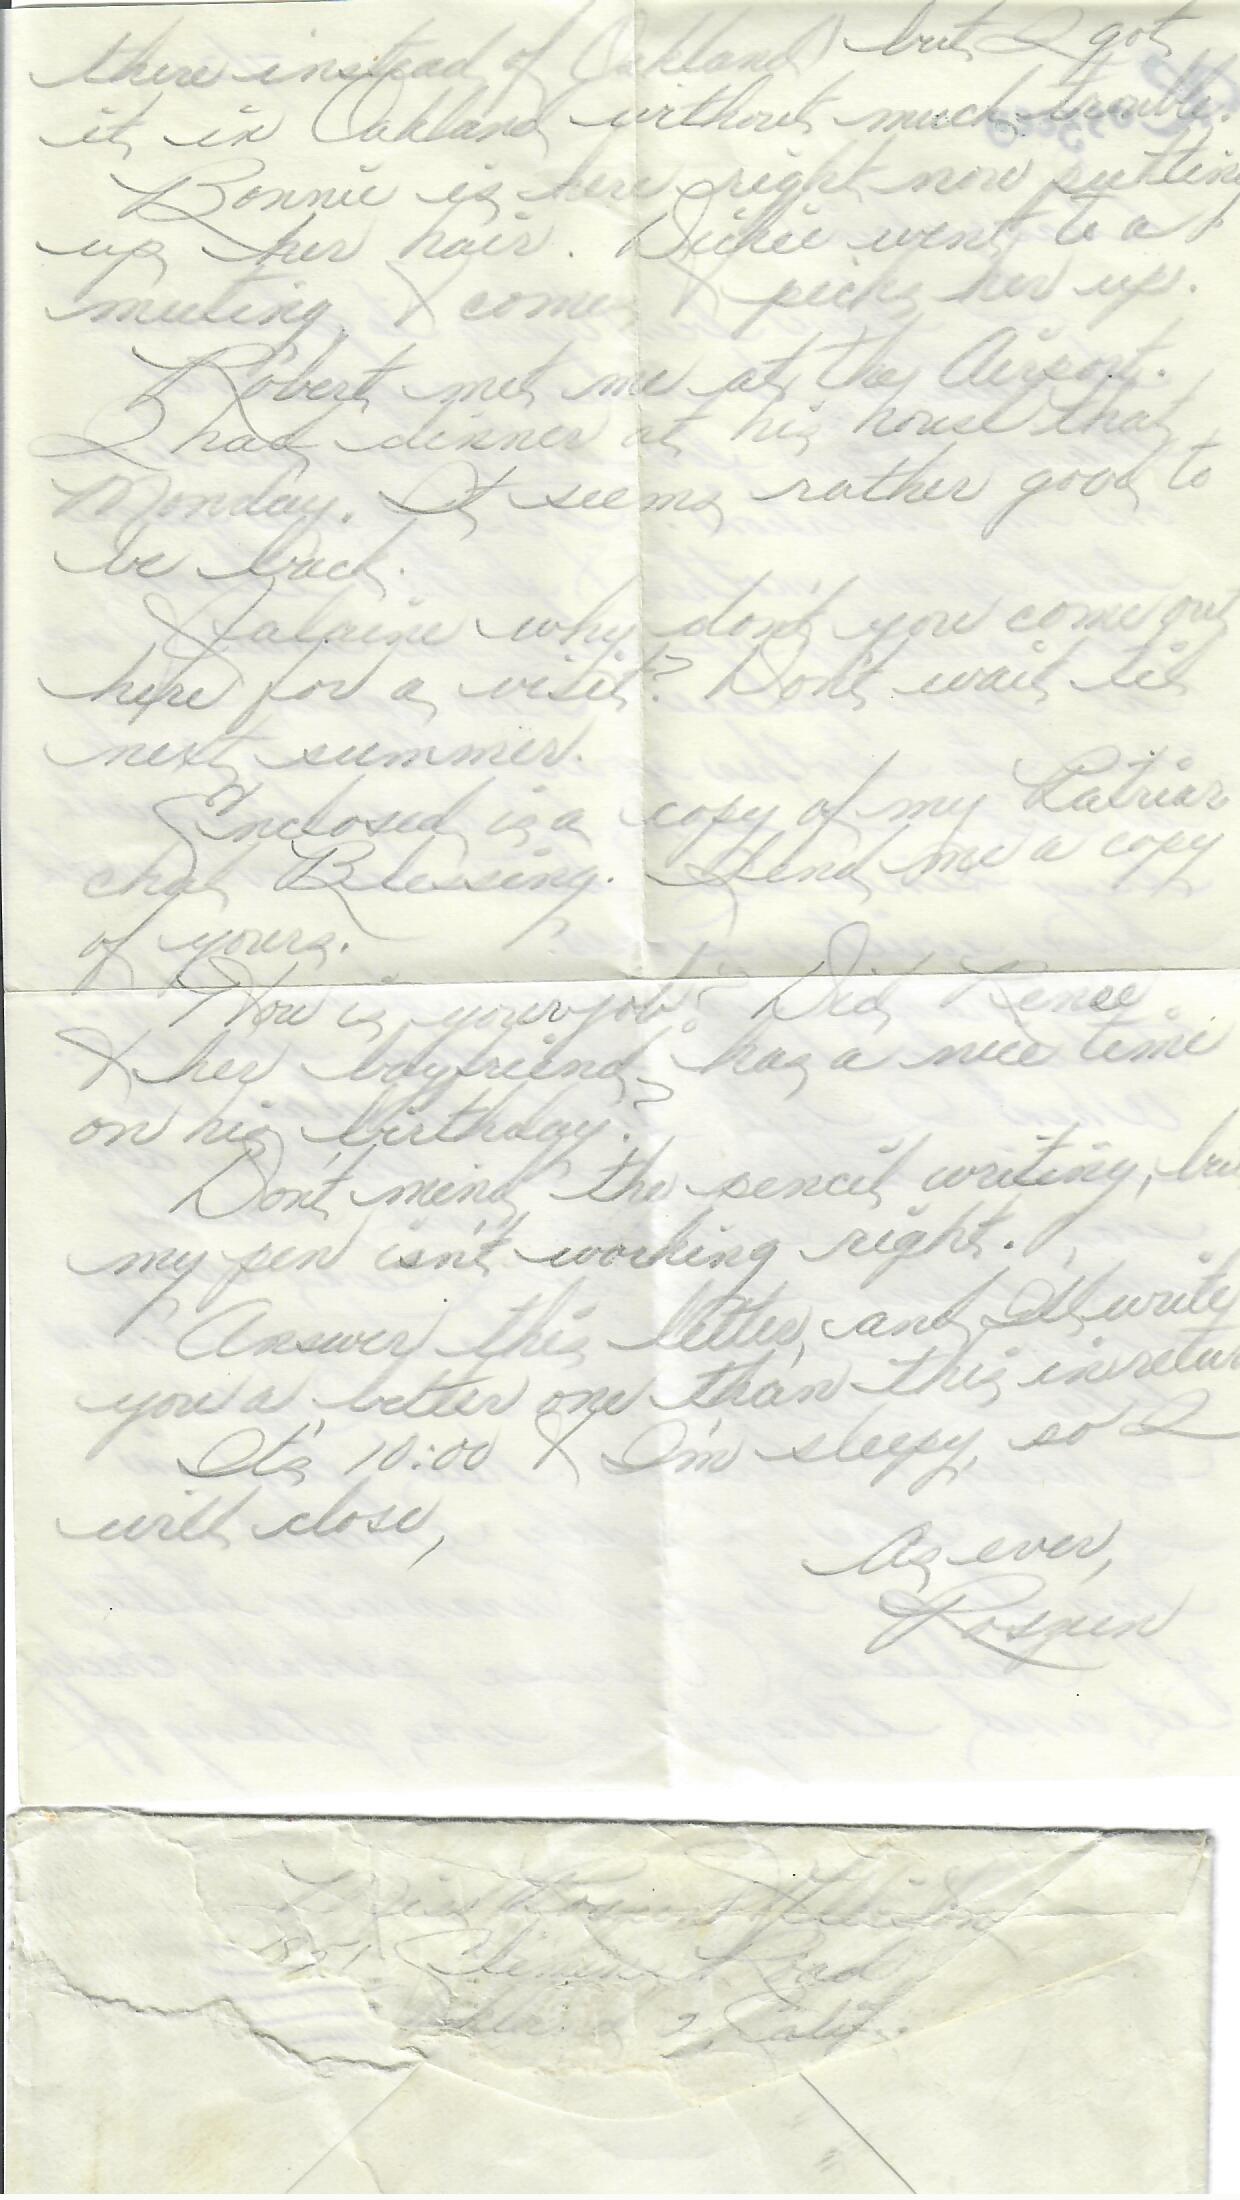 there instead of Oakland) but I got
it in Oakland without much trouble.
Bonnie is here right now putting
up her hair. Dickie went to a
meeting & comes & picks her up.
Robert met me at the Airport.
I had dinner at his house that
Monday. It seems rather good to
be back.
why don't you come out
here for a visit? Don't wait til
next summer.
Enclosed is a copy of my Patriar
chal Blessing. Send me a copy
of yours.
How is your job? Did Renee
& her boyfriend have a nice time
on his birthday?
Don't mind the pencil writing, but
my pen isn't working right.
Answer this letter, and I'll write
you a better one than this in retur
It's 10:00 & I'm sleepy, so I
will close,
As ever,
Rosyen
Miss
Road
Oakland 2, Calif.